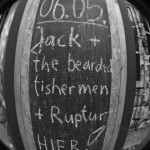 06.05.
Jack +
the bearded
fishermen
+ Ruptur
HIER